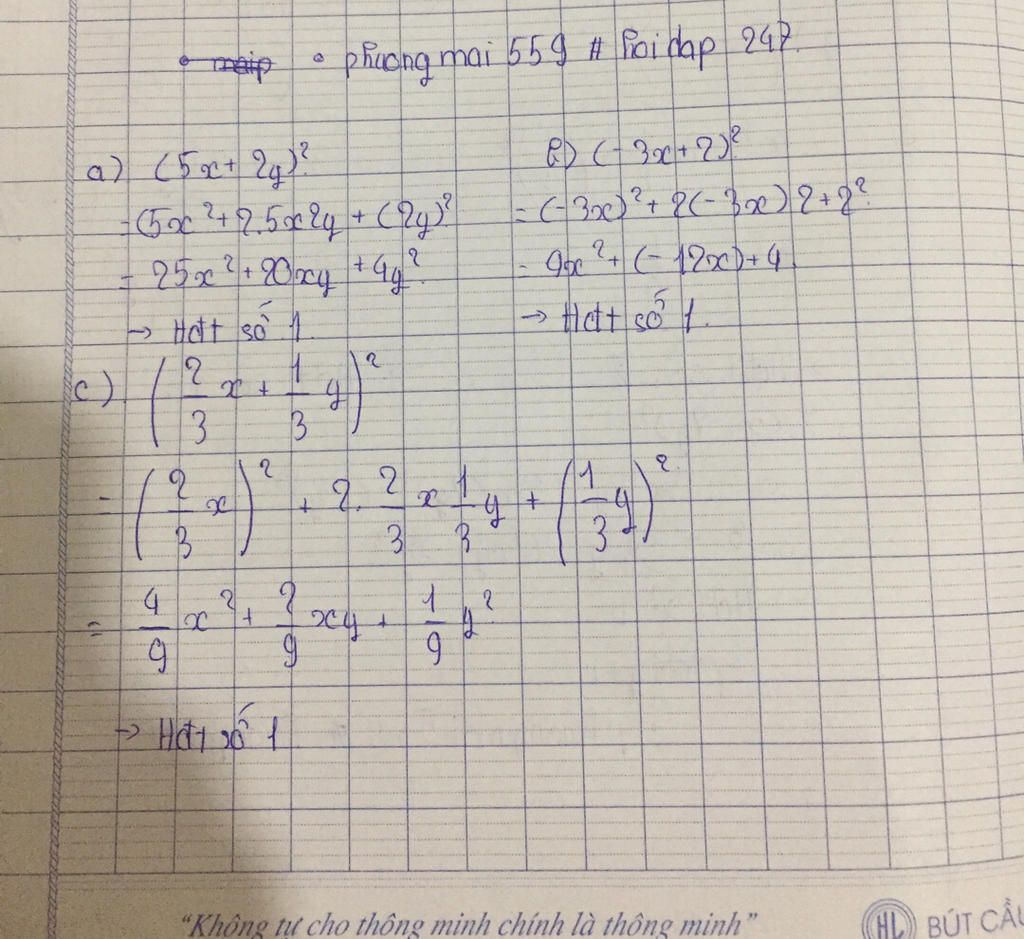 • phuongmai 559 # hoidap 247
a) (5x + 2y)²
= (5x² + 2.5x2y + (2y)²
= 25x² + 20xy + 4y²
→ Hđt số 1
b) (-3x+2)²
= (-3x)² + 2(-3x) 2 + 2²
= 9x² + (-12x) + 4
→ Hđt số 1.
c) (2/3 x + 1/3 y)²
= (2/3 x)² + 2. 2/3 x 1/3 y + (1/3 y)²
= 4/9 x² + 2/9 xy + 1/9 y²
→ Hđt số 1
"Không tự cho thông minh chính là thông minh"
HL BÚT